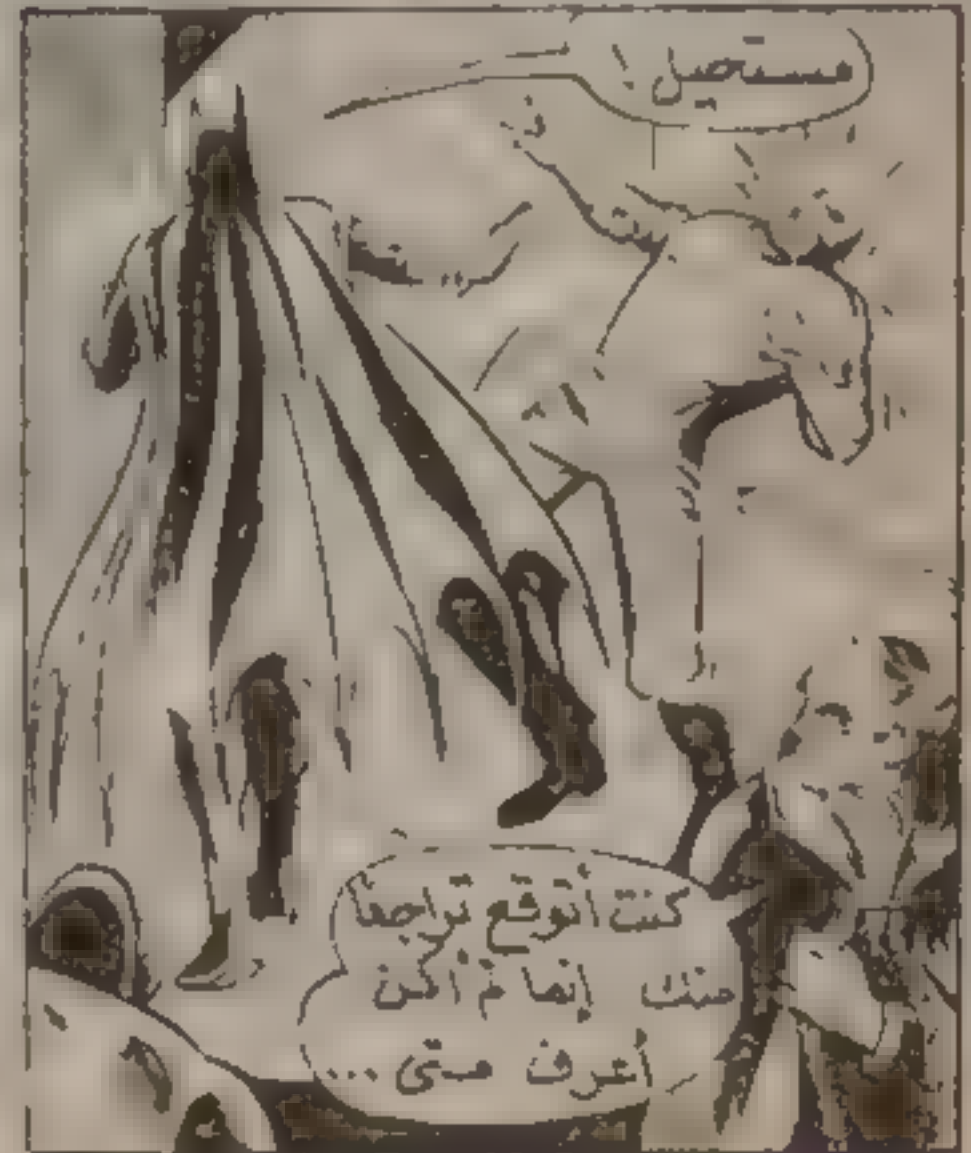 مستحيل !
كنت أتوقع تراجعاً
منك إنما لم أكن
أعرف متى ...